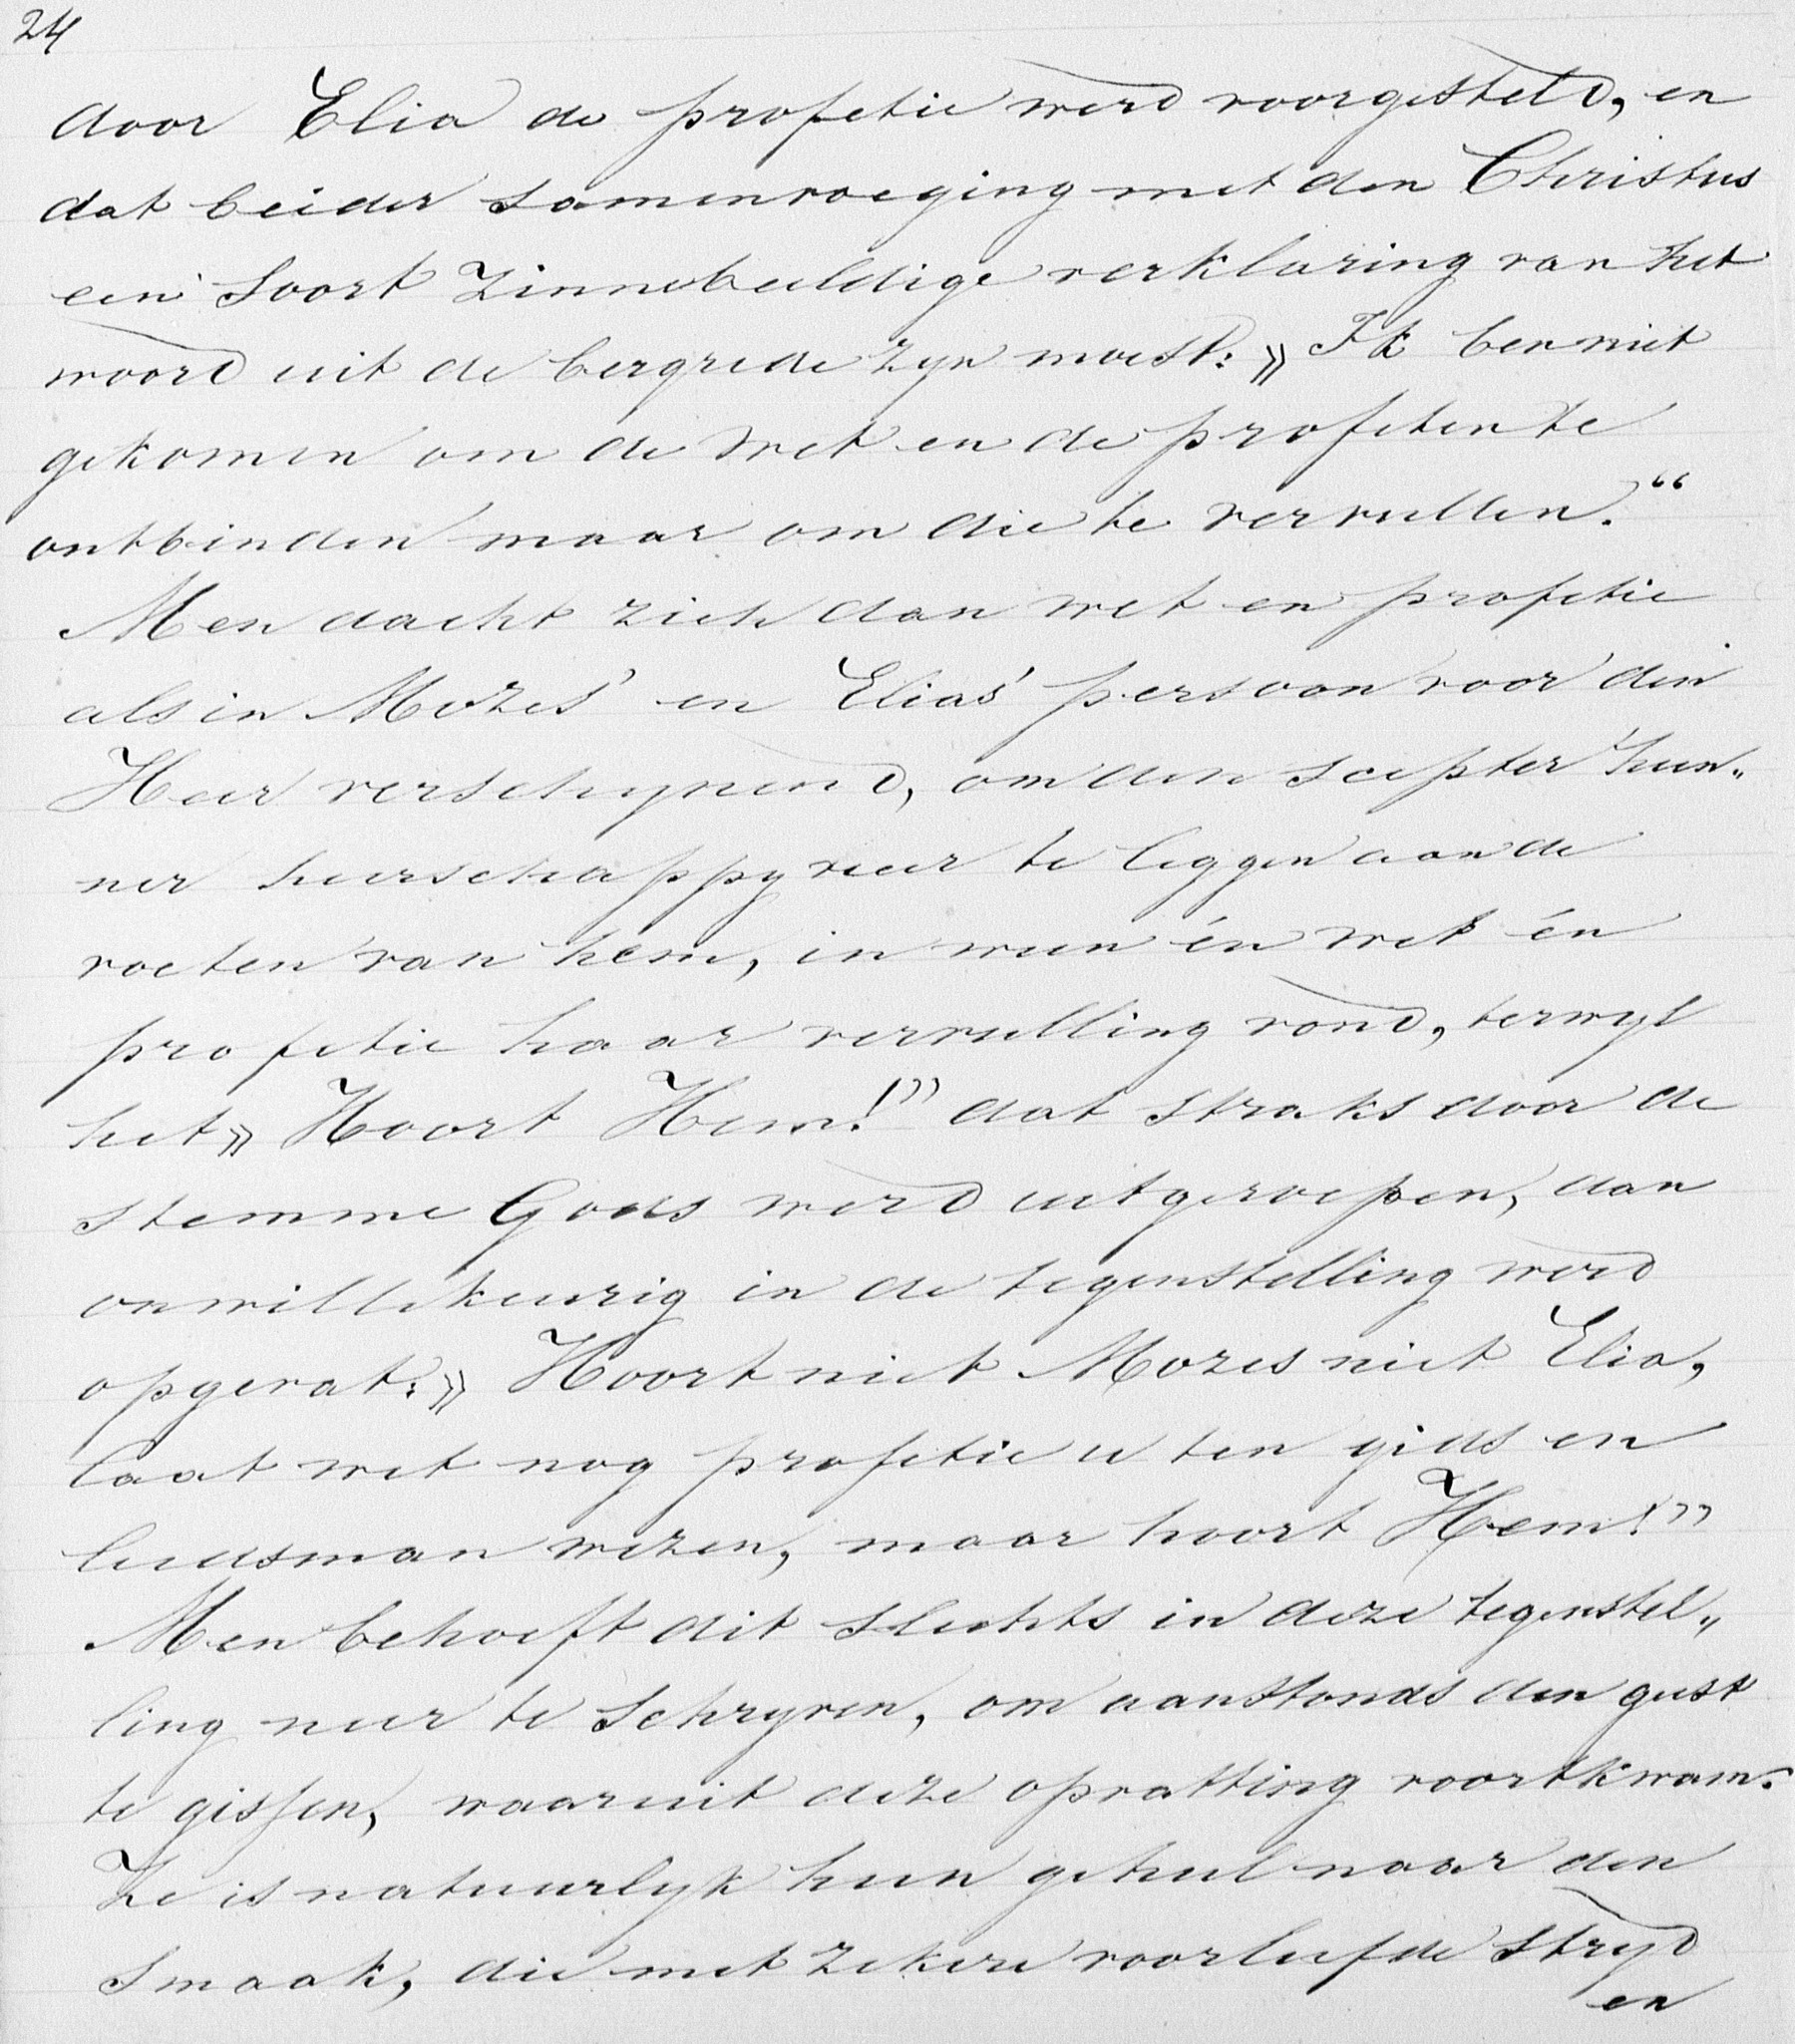 24
door Elia de profetie werd voorgesteld, en
dat beider samenvoeging met den Christus
een soort zinnebeeldige verklaring van het
woord uit de bergrede zyn moest: » Ik ben niet
gekomen om de wet en de profeten te
ontbinden maar om die te vervullen.“
Men dacht zich dan wet en profetie
als in Mozes' en Elias' persoon voor den
Heer verschynend, om den scepter hun„
ner heerschappy neer te leggen aan de
voeten van hem, in wien én wet én
profetie haar vervulling vond, terwyl
het » Hoort Hem!” dat straks door de
stemme Gods werd uitgeroepen, dan
onwillekeurig in de tegenstelling werd
opgevat: » Hoort niet Mozes niet Elia,
laat wet nog profetie u ten gids en
leidsman wezen, maar hoort Hem!”
Men behoeft dit slechts in deze tegenstel„
ling neer te schryven, om aanstonds den geest
te gissen, waaruit deze opvatting voortkwam.
Ze is natuurlyk heen geheel naar den
smaak, die met zekere voorliefde stryd
en